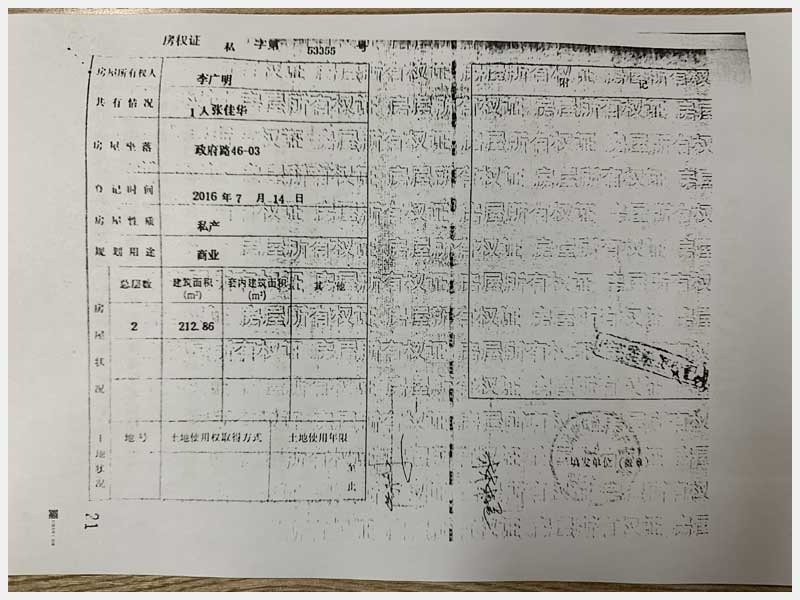 房权证 私 字第 53355 号
房屋所有权人 李广明
共有情况 1人张佳华
房屋坐落 政府路46-03
登记时间 2016年7月14日
房屋性质 私产
规划用途 商业
房屋状况 总层数 建筑面积(m²) 套内建筑面积(m²) 其他
2 212.86
土地状况 地号 土地使用权取得方式 土地使用年限
至
止
附 记
填发单位（盖章）
21